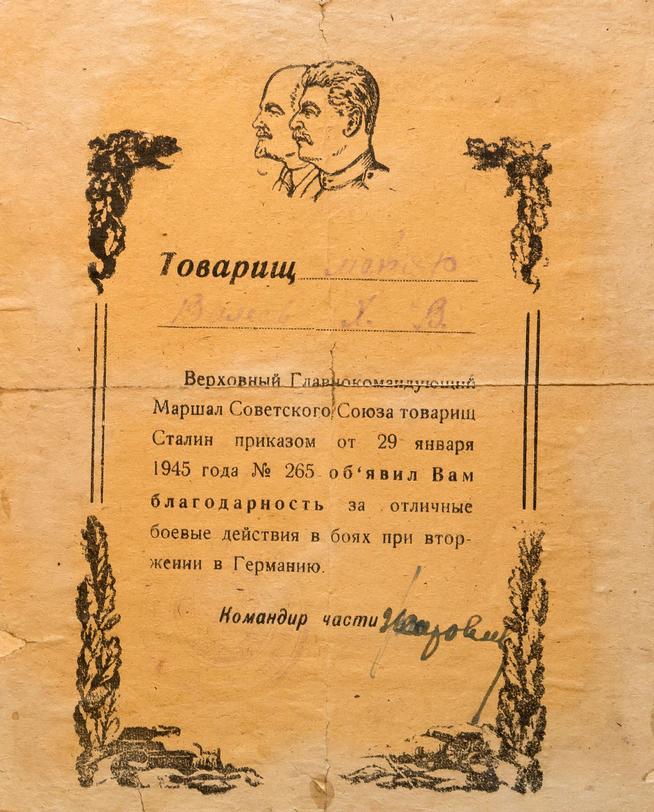 Товарищ
Х. В.
Верховный Главнокомандующий
Маршал Советского Союза товарищ
Сталин приказом от 29 января
1945 года № 265 об‘явил Вам
благодарность за отличные
боевые действия в боях при втор-
жении в Германию.
Командир части